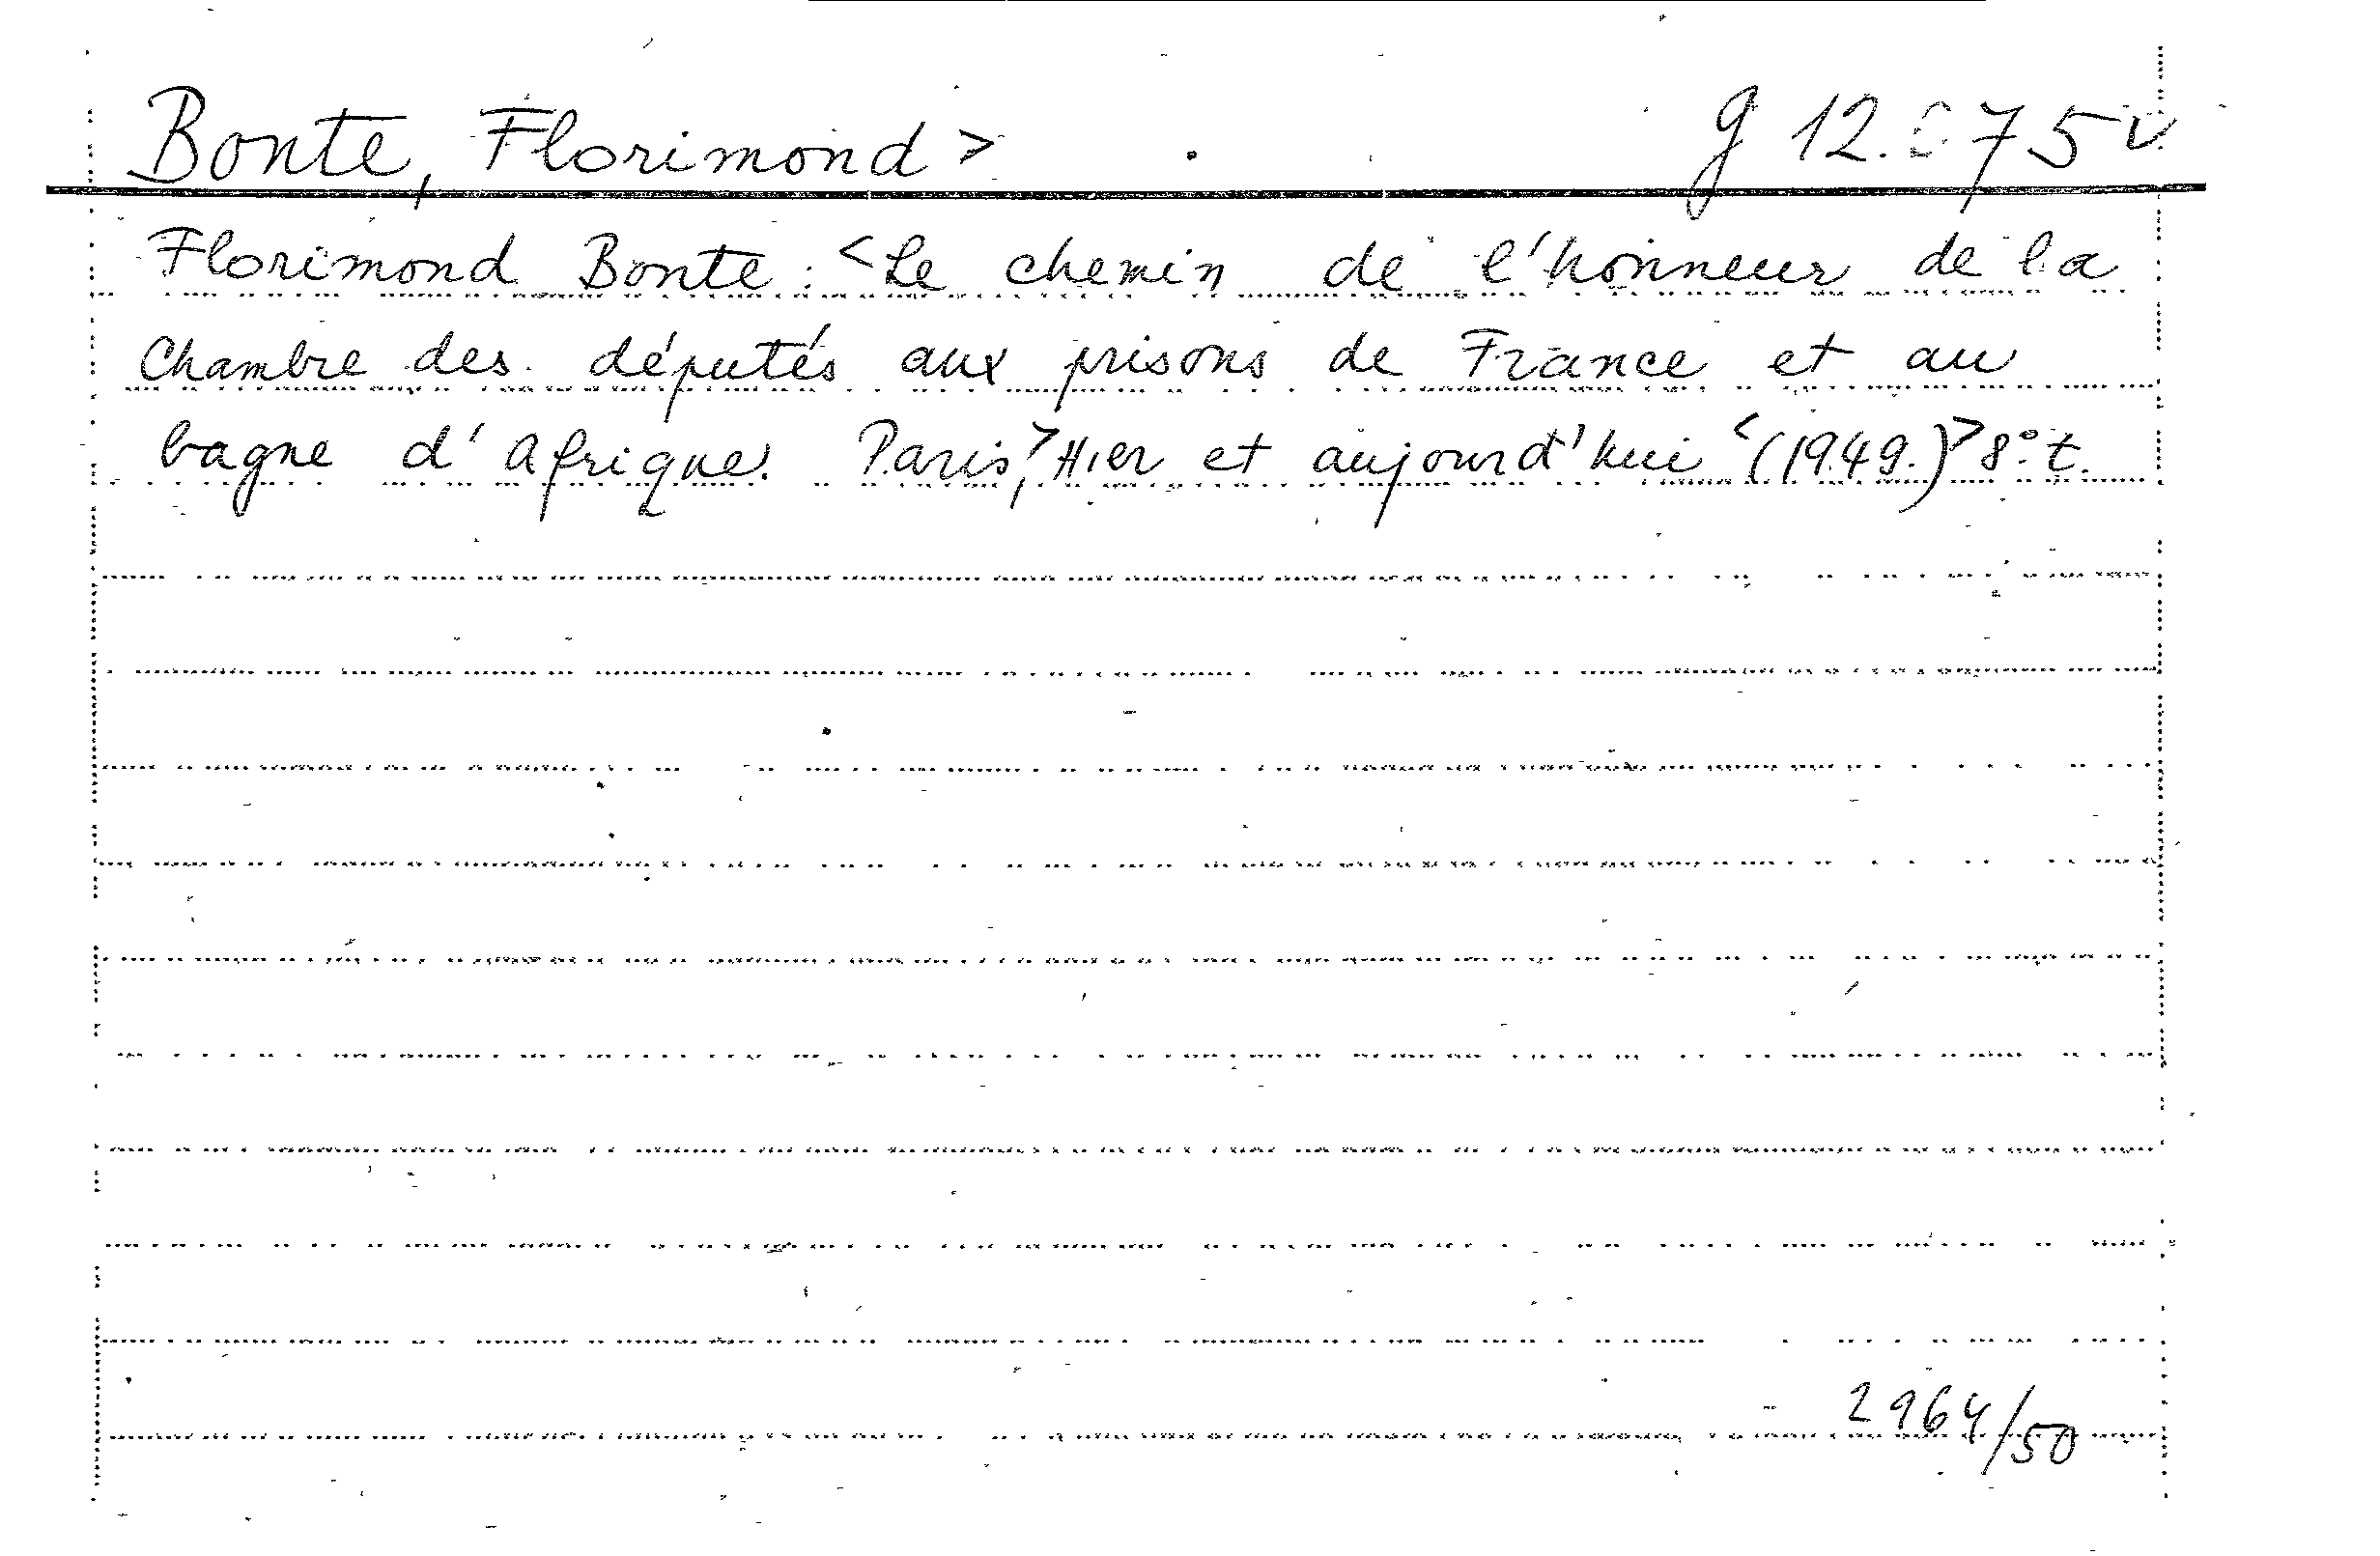 Bonte, Florimond > g 12. 75 v
Florimond Bonte: <Le chemin de l'honneur de la
Chambre des députés aux prisons de France et au
bagne d'Afrique. Paris,> Hier et aujourd'hui <(1949.)> 8° t.
2964/50